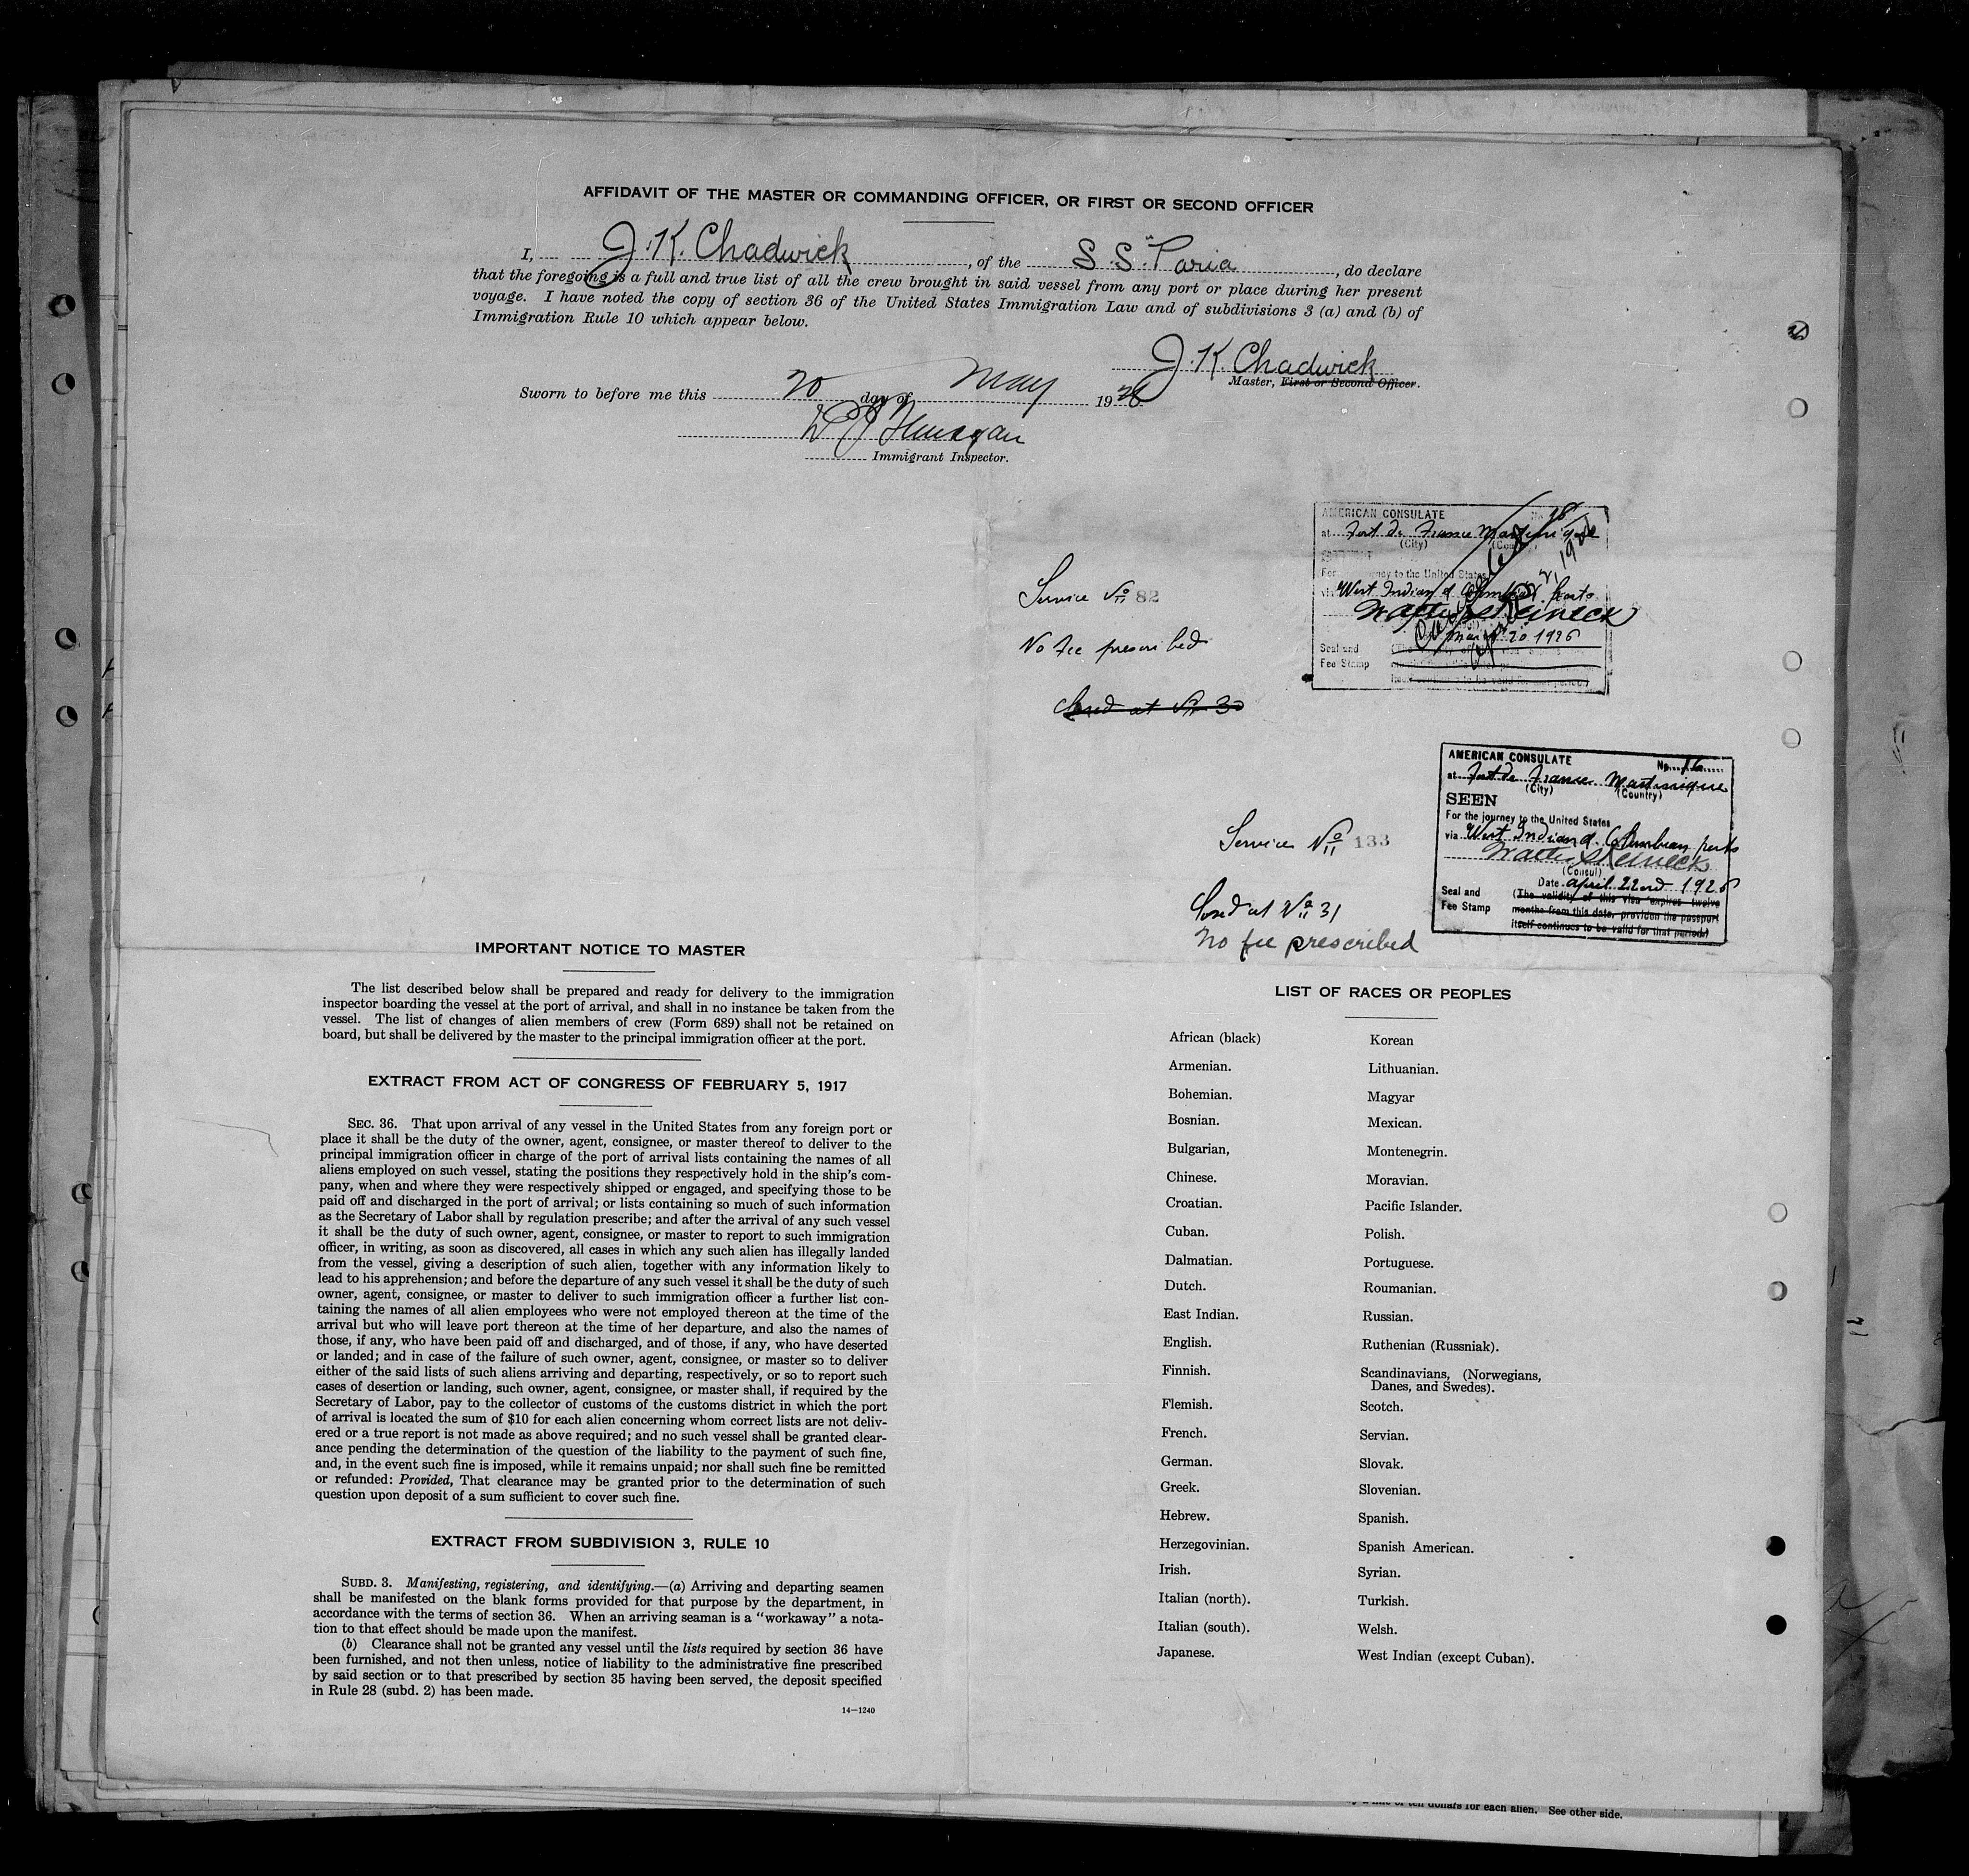 AFFIDAVIT OF THE MASTER OR COMMANDING OFFICER, OR FIRST OR SECOND OFFICER
I, J. K. Chadwick, of the S.S. "Paria, do declare
that the foregoing is a full and true list of all the crew brought in said vessel from any port or place during her present
voyage. I have noted the copy of section 36 of the United States Immigration Law and of subdivisions 3 (a) and (b) of
Immigration Rule 10 which appear below.
J. K Chadwick
Master, First or Second Officer.
Sworn to before me this 20 day of May 1926
Immigrant Inspector.
AMERICAN CONSULATE No. 18
at Fort de France Martinique
(City) (Country)
For journey to the United States
via West Indian & Colombian ports
March 20 1926
Seal and
Fee Stamp
Service No 82
No fee prescribed
AMERICAN CONSULATE No. 16
at Fort de France Martinique
(City) (Country)
SEEN
For the journey to the United States
via West Indian & Colombian ports
(Consul)
Date April 22nd 1926
Seal and (The validity of this visa expires twelve
Fee Stamp months from this date, provided the passport
itself continues to be valid for that period)
Service No 133
at No 31
No fee prescribed
IMPORTANT NOTICE TO MASTER
The list described below shall be prepared and ready for delivery to the immigration
inspector boarding the vessel at the port of arrival, and shall in no instance be taken from the
vessel. The list of changes of alien members of crew (Form 689) shall not be retained on
board, but shall be delivered by the master to the principal immigration officer at the port.
EXTRACT FROM ACT OF CONGRESS OF FEBRUARY 5, 1917
SEC. 36. That upon arrival of any vessel in the United States from any foreign port or
place it shall be the duty of the owner, agent, consignee, or master thereof to deliver to the
principal immigration officer in charge of the port of arrival lists containing the names of all
aliens employed on such vessel, stating the positions they respectively hold in the ship's com-
pany, when and where they were respectively shipped or engaged, and specifying those to be
paid off and discharged in the port of arrival; or lists containing so much of such information
as the Secretary of Labor shall by regulation prescribe; and after the arrival of any such vessel
it shall be the duty of such owner, agent, consignee, or master to report to such immigration
officer, in writing, as soon as discovered, all cases in which any such alien has illegally landed
from the vessel, giving a description of such alien, together with any information likely to
lead to his apprehension; and before the departure of any such vessel it shall be the duty of such
owner, agent, consignee, or master to deliver to such immigration officer a further list con-
taining the names of all alien employees who were not employed thereon at the time of the
arrival but who will leave port thereon at the time of her departure, and also the names of
those, if any, who have been paid off and discharged, and of those, if any, who have deserted
or landed; and in case of the failure of such owner, agent, consignee, or master so to deliver
either of the said lists of such aliens arriving and departing, respectively, or so to report such
cases of desertion or landing, such owner, agent, consignee, or master shall, if required by the
Secretary of Labor, pay to the collector of customs of the customs district in which the port
of arrival is located the sum of $10 for each alien concerning whom correct lists are not deliv-
ered or a true report is not made as above required; and no such vessel shall be granted clear-
ance pending the determination of the question of the liability to the payment of such fine,
and, in the event such fine is imposed, while it remains unpaid; nor shall such fine be remitted
or refunded: Provided, That clearance may be granted prior to the determination of such
question upon deposit of a sum sufficient to cover such fine.
EXTRACT FROM SUBDIVISION 3, RULE 10
SUBD. 3. Manifesting, registering, and identifying.—(a) Arriving and departing seamen
shall be manifested on the blank forms provided for that purpose by the department, in
accordance with the terms of section 36. When an arriving seaman is a "workaway" a nota-
tion to that effect should be made upon the manifest.
(b) Clearance shall not be granted any vessel until the lists required by section 36 have
been furnished, and not then unless, notice of liability to the administrative fine prescribed
by said section or to that prescribed by section 35 having been served, the deposit specified
in Rule 28 (subd. 2) has been made.
14—1240
LIST OF RACES OR PEOPLES
African (black)
Armenian.
Bohemian.
Bosnian.
Bulgarian,
Chinese.
Croatian.
Cuban.
Dalmatian.
Dutch.
East Indian.
English.
Finnish.
Flemish.
French.
German.
Greek.
Hebrew.
Herzegovinian.
Irish.
Italian (north).
Italian (south).
Japanese.
Korean
Lithuanian.
Magyar
Mexican.
Montenegrin.
Moravian.
Pacific Islander.
Polish.
Portuguese.
Roumanian.
Russian.
Ruthenian (Russniak).
Scandinavians, (Norwegians,
Danes, and Swedes).
Scotch.
Servian.
Slovak.
Slovenian.
Spanish.
Spanish American.
Syrian.
Turkish.
Welsh.
West Indian (except Cuban).
of ten dollars for each alien. See other side.